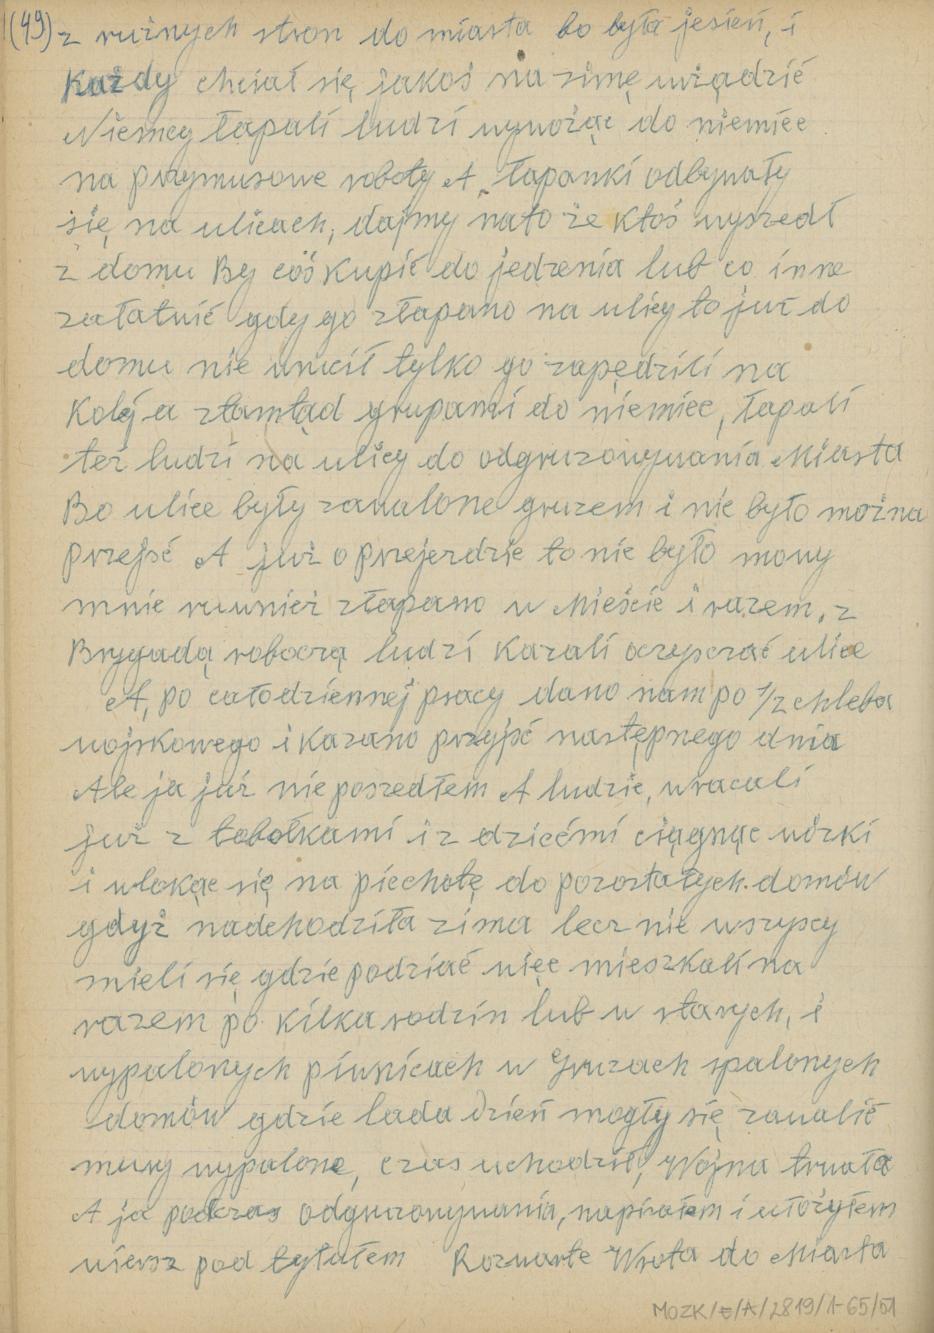 (49) z rużnych stron do miasta bo była jesień, i
Każdy chciał się jakoś na zimę użądzić
Niemcy łapali ludzi wywożąc do niemiec
na przymusowe roboty A, łapanki odbywały
się na ulicach, dajmy nato że ktoś wyszedł
z domu By coś kupić do jedzenia lub co inne
załatwić gdy go złapano na ulicy to już do
domu nie wrucił tylko go zapędzili na
Kolej a ztamtąd grupami do niemiec, łapali
też ludzi na ulicy do odgruzowywania Miasta
Bo ulice były zawalone gruzem i nie było można
przejść A już o przejezdzie to nie było mowy
mnie ruwnież złapano w Mieście i razem, z
Brygadą roboczą ludzi Kazali oczyszczać ulice
A, po całodziennej pracy dano nam po 1/2 chleba
wojskowego i Kazano przyjść następnego dnia
Ale ja już nie poszedłem A ludzie, wracali
już z tobołkami i z dziećmi ciągnąc wózki
i wlokąc się na piechotę do pozostałych domów
gdyż nadchodziła zima lecz nie wszyscy
mieli się gdzie podziać więc mieszkali na
razem po Kilka rodzin lub w starych, i
wypalonych piwnicach w Gruzach spalonych
domów gdzie lada dzień mogły się zawalić
mury wypalone, czas uchodził, Wojna trwała
A ja podczas odgruzowywania, napisałem i ułożyłem
wiersz pod tytułem Rozwarte Wrota do Miasta
MOZK/E/A/2819/1-65/51